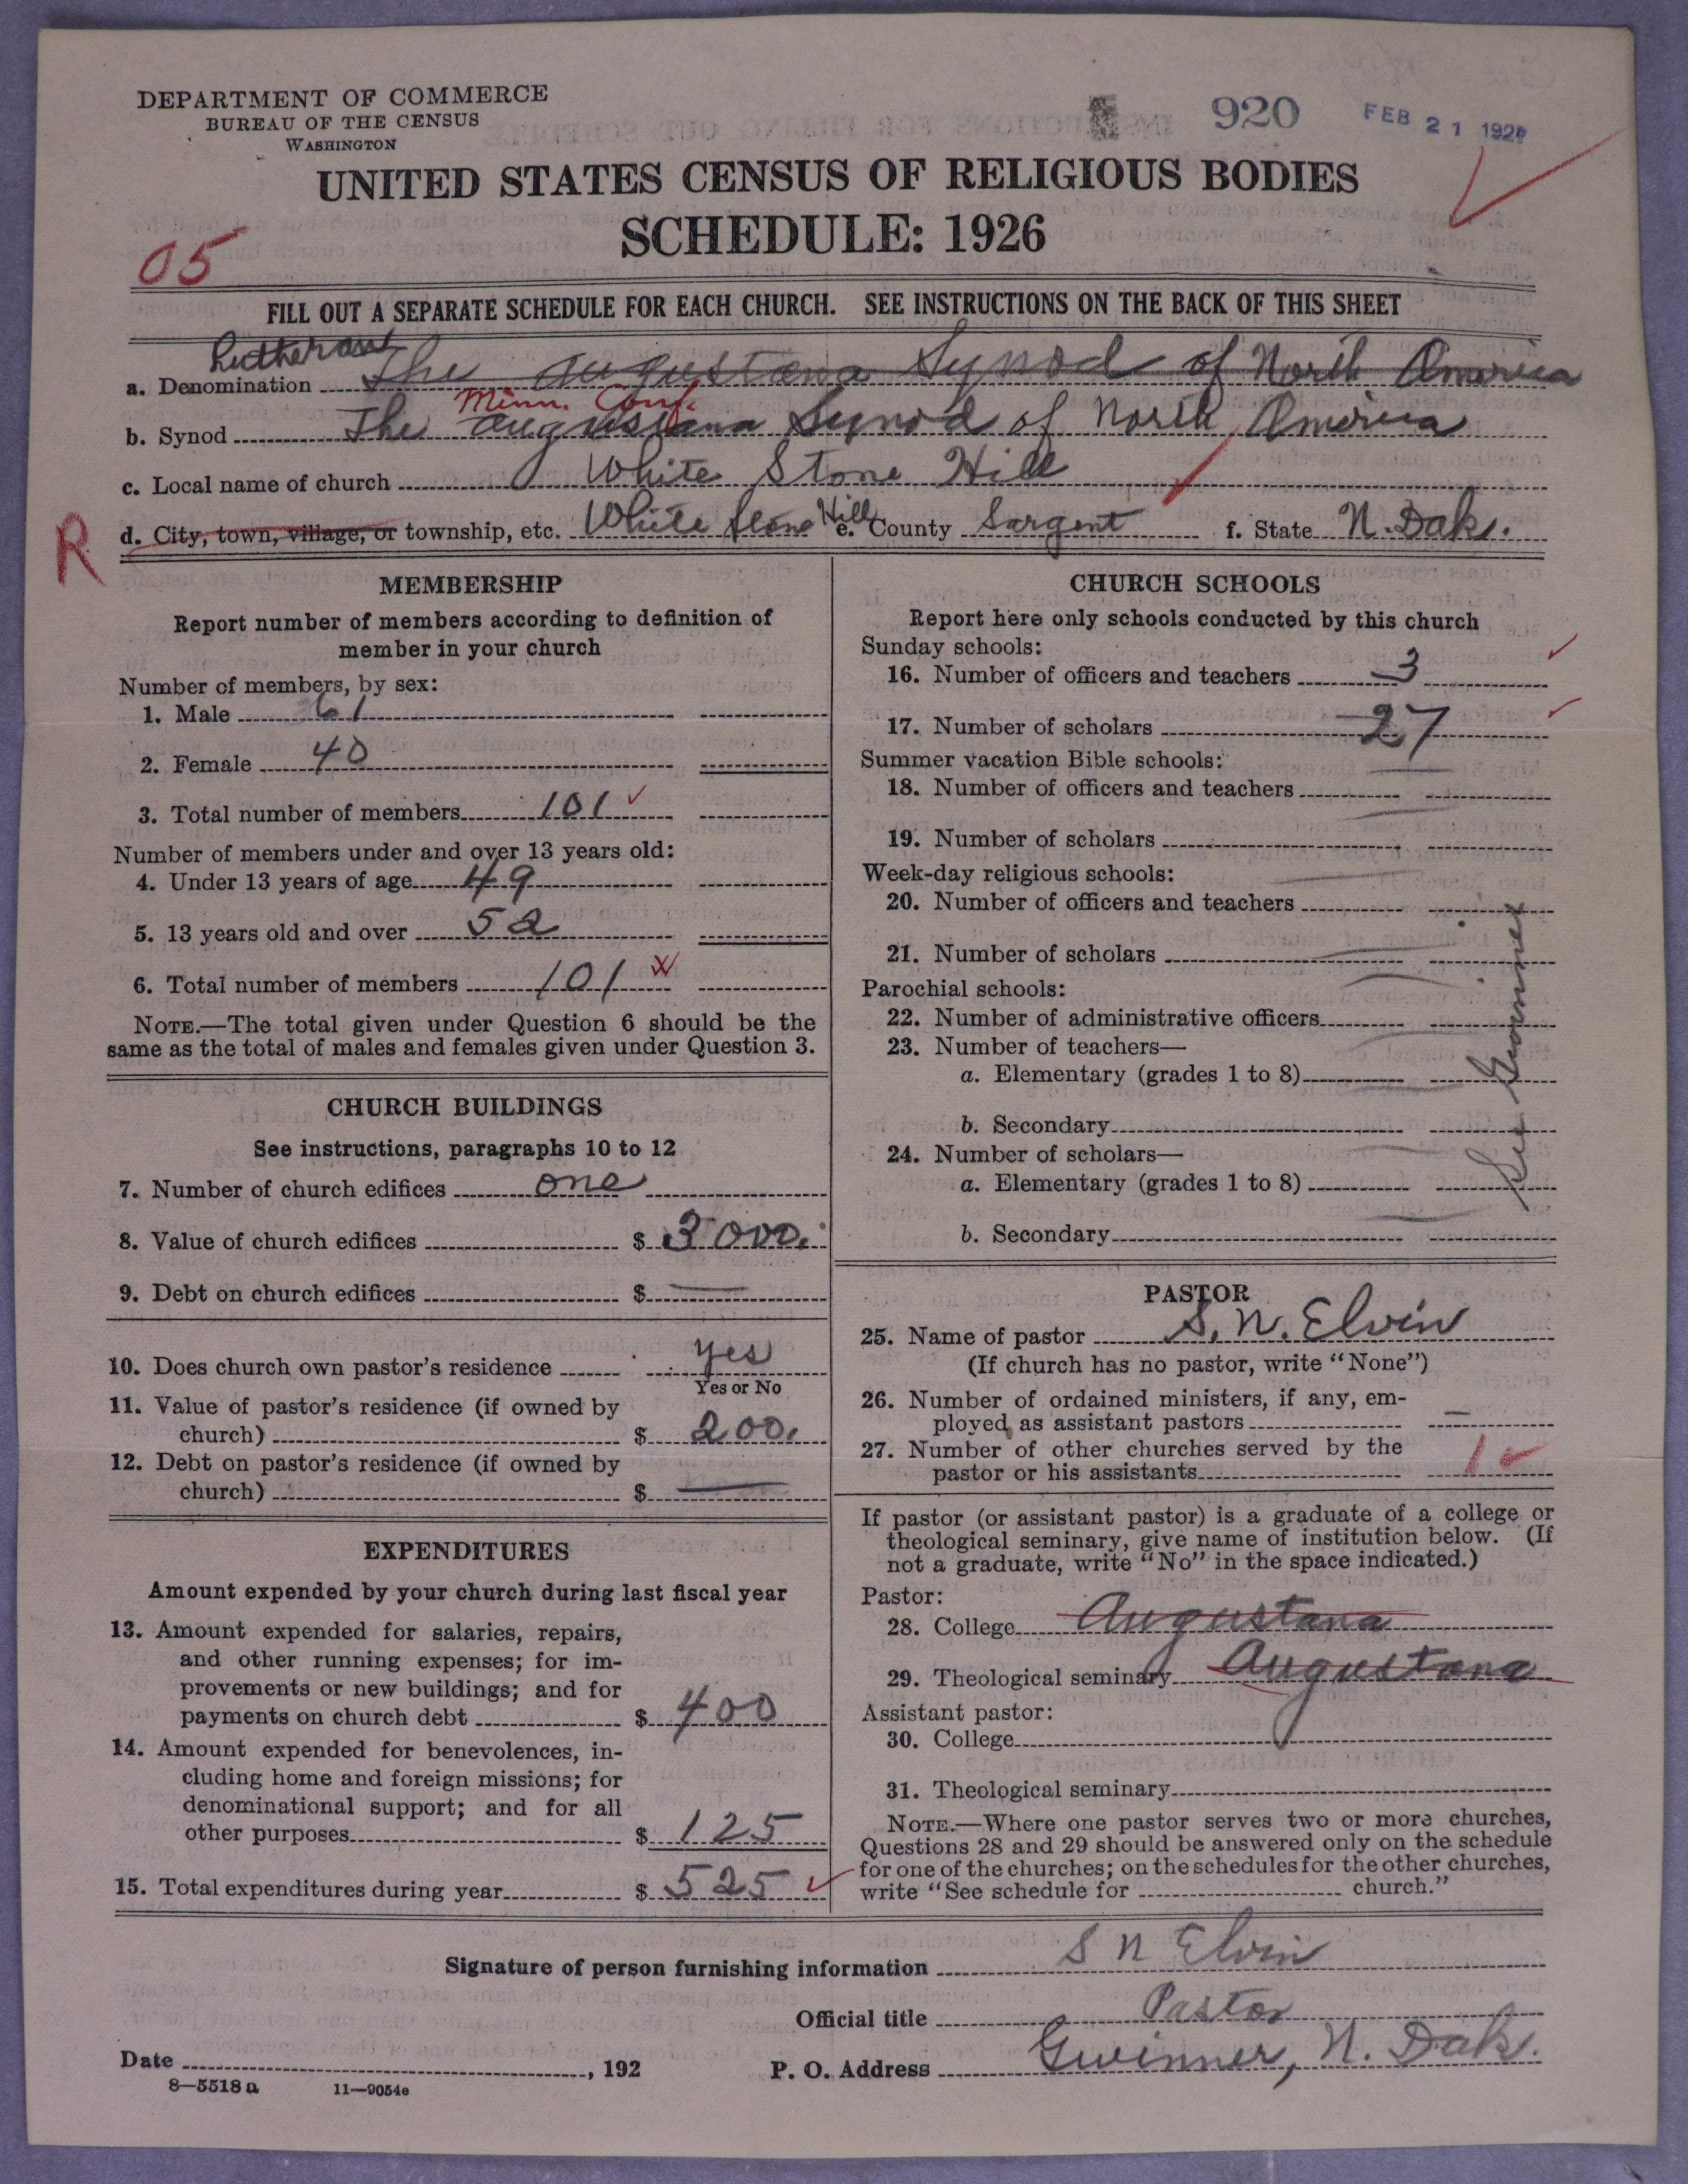 DEPARTMENT OF COMMERCE
BUREAU OF THE CENSUS
WASHINGTON
920
FEB 21 192
UNITED STATES CENSUS OF RELIGIOUS BODIES
SCHEDULE: 1926
05
FILL OUT A SEPARATE SCHEDULE FOR EACH CHURCH. SEE INSTRUCTIONS ON THE BACK OF THIS SHEET
Lutheran
a. Denomination The Augustana Synod of North America
Minn. Conf.
b. Synod The Augustana Synod of North America
c. Local name of church White Stone Hill
R d. City, town, village, or township, etc. White Stone Hill e. County Sargent f. State N. Dak.
MEMBERSHIP
Report number of members according to definition of
member in your church
Number of members, by sex:
1. Male 61
2. Female 40
3. Total number of members 101
Number of members under and over 13 years old:
4. Under 13 years of age 49
5. 13 years old and over 52
6. Total number of members 101
NOTE.—The total given under Question 6 should be the
same as the total of males and females given under Question 3.
CHURCH BUILDINGS
See instructions, paragraphs 10 to 12
7. Number of church edifices one
8. Value of church edifices $ 3000.
9. Debt on church edifices $ —
10. Does church own pastor's residence yes
Yes or No
11. Value of pastor's residence (if owned by
church) $ 200.
12. Debt on pastor's residence (if owned by
church) $ —
EXPENDITURES
Amount expended by your church during last fiscal year
13. Amount expended for salaries, repairs,
and other running expenses; for im-
provements or new buildings; and for
payments on church debt $ 400
14. Amount expended for benevolences, in-
cluding home and foreign missions; for
denominational support; and for all
other purposes $ 125
15. Total expenditures during year $ 525
CHURCH SCHOOLS
Report here only schools conducted by this church
Sunday schools:
16. Number of officers and teachers 3
17. Number of scholars 27
Summer vacation Bible schools:
18. Number of officers and teachers —
19. Number of scholars —
Week-day religious schools:
20. Number of officers and teachers —
21. Number of scholars —
Parochial schools:
22. Number of administrative officers —
23. Number of teachers—
a. Elementary (grades 1 to 8) —
b. Secondary
24. Number of scholars—
a. Elementary (grades 1 to 8)
b. Secondary —
See Gwinner
PASTOR
25. Name of pastor S. N. Elvin
(If church has no pastor, write "None")
26. Number of ordained ministers, if any, em-
ployed as assistant pastors —
27. Number of other churches served by the
pastor or his assistants 1
If pastor (or assistant pastor) is a graduate of a college or
theological seminary, give name of institution below. (If
not a graduate, write "No" in the space indicated.)
Pastor:
28. College Augustana
29. Theological seminary Augustana
Assistant pastor:
30. College
31. Theological seminary
NOTE.—Where one pastor serves two or more churches,
Questions 28 and 29 should be answered only on the schedule
for one of the churches; on the schedules for the other churches,
write "See schedule for church."
Signature of person furnishing information S N Elvin
Official title Pastor
Date , 192 P. O. Address Gwinner, N. Dak.
8—5518 a 11—9054e